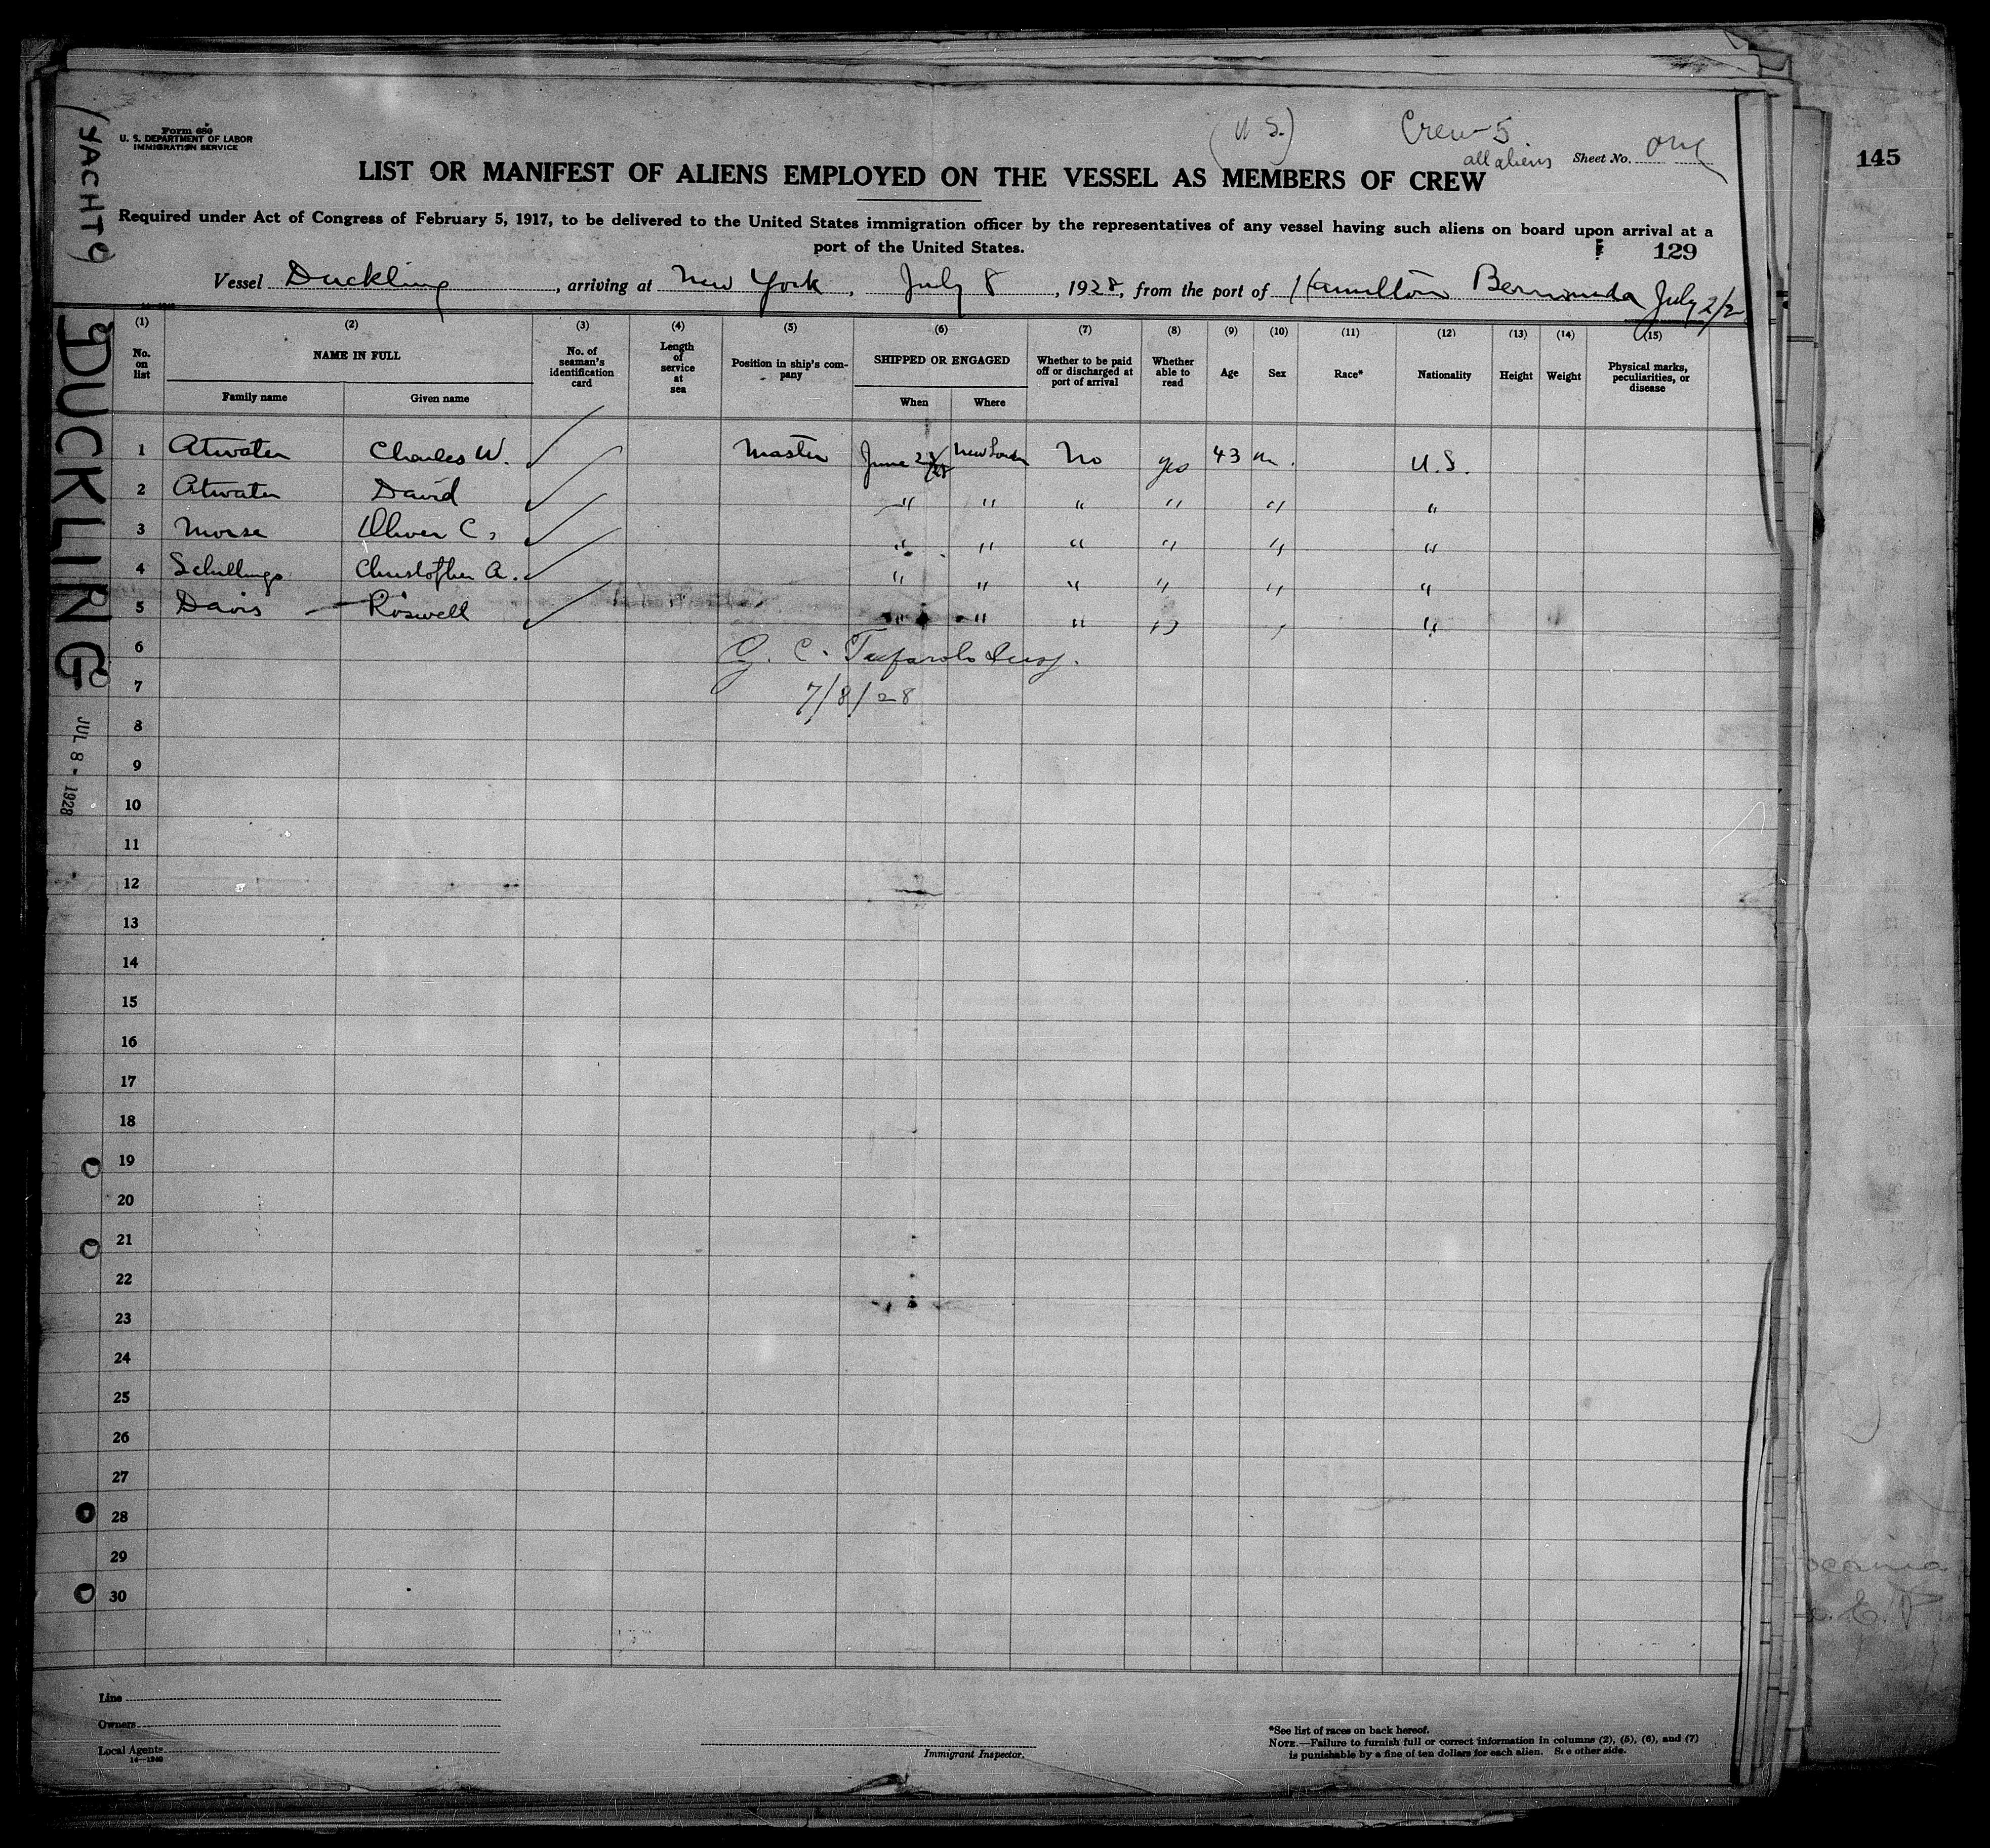 Form 680
U. S. DEPARTMENT OF LABOR
IMMIGRATION SERVICE
(U S.)
Crew 5
all aliens
Sheet No. one
145
LIST OR MANIFEST OF ALIENS EMPLOYED ON THE VESSEL AS MEMBERS OF CREW
Required under Act of Congress of February 5, 1917, to be delivered to the United States immigration officer by the representatives of any vessel having such aliens on board upon arrival at a
port of the United States.
129
Vessel Duckling, arriving at New York, July 8, 1928, from the port of Hamilton Bermuda July 2/2
(YACHT)
DUCKLING
JUL 8 - 1928
(1) (2) (3) (4) (5) (6) (7) (8) (9) (10) (11) (12) (13) (14) (15)
No. on list
NAME IN FULL
Family name Given name
No. of seaman's identification card
Length of service at sea
Position in ship's company
SHIPPED OR ENGAGED
When Where
Whether to be paid off or discharged at port of arrival
Whether able to read
Age
Sex
Race*
Nationality
Height
Weight
Physical marks, peculiarities, or disease
1 Atwater Charles W. Master June New London No yes 43 m. U.S.
2 Atwater David " " " " " "
3 Morse Oliver C. " " " " " "
4 Schillings Christopher A. " " " " " "
5 Davis - Roswell " " " " " "
6 C. Insp.
7 7/8/28
8
9
10
11
12
13
14
15
16
17
18
19
20
21
22
23
24
25
26
27
28
29
30
Line
Owners
Local Agents
14-1240
Immigrant Inspector.
*See list of races on back hereof.
NOTE.—Failure to furnish full or correct information in columns (2), (5), (6), and (7)
is punishable by a fine of ten dollars for each alien. See other side.